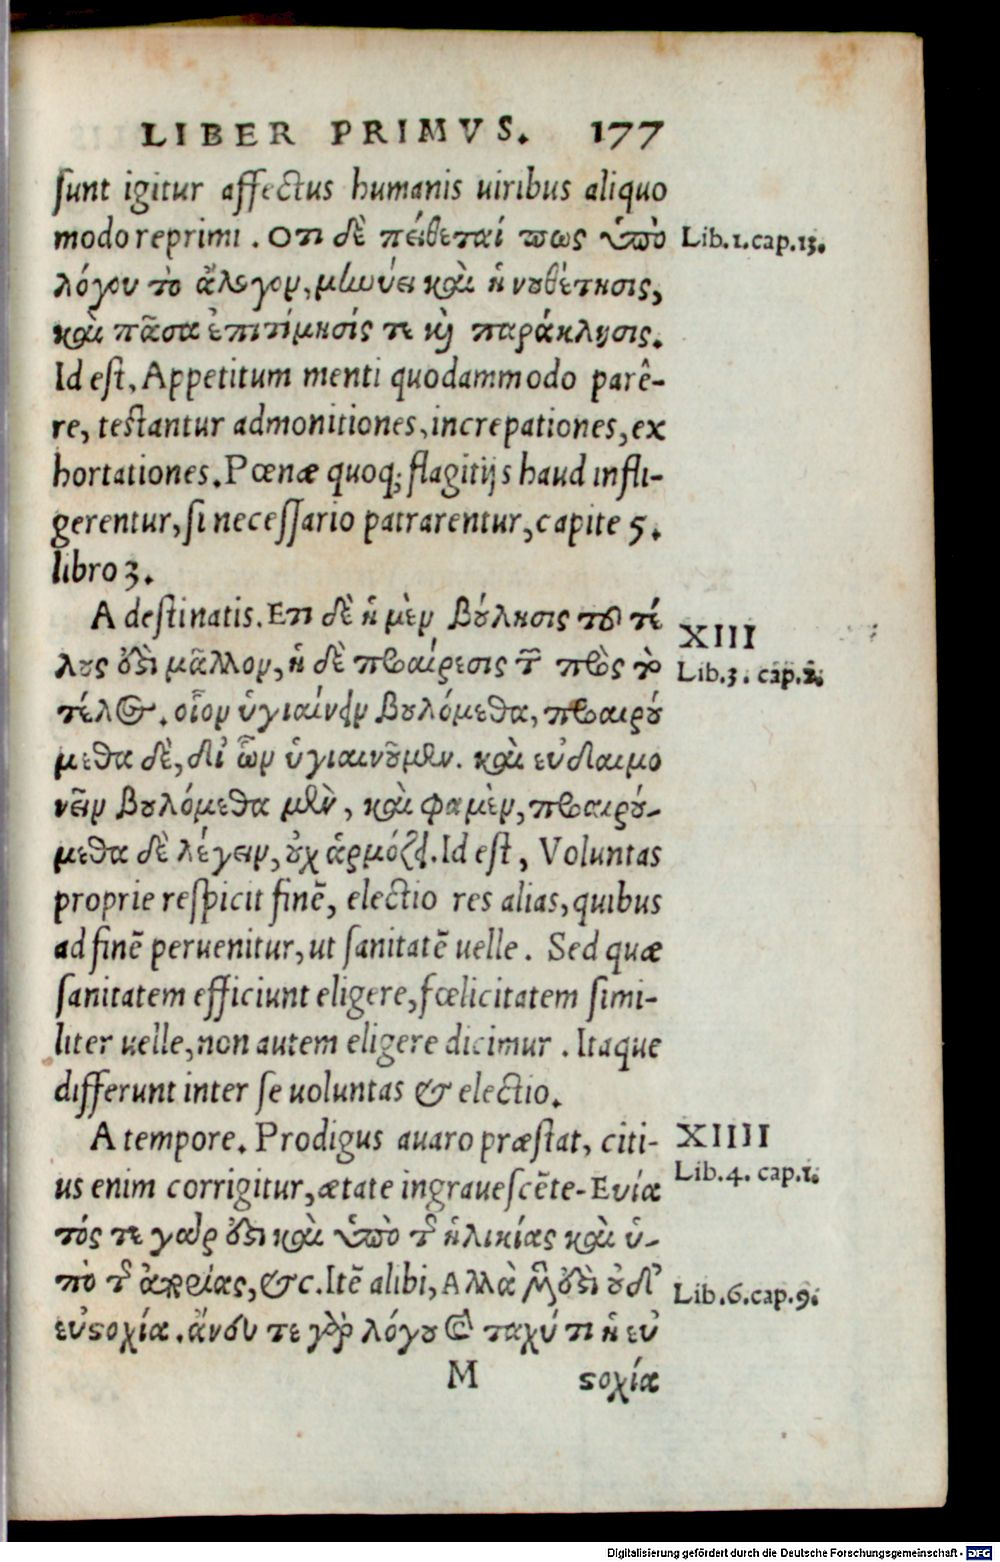 LIBER PRIMVS. 177
sunt igitur affectus humanis uiribus aliquo
modo reprimi. Οτι δὲ πείθεταί πως ὑπὸ Lib.1.cap.13.
λόγου τὸ ἄλογον, μωνύει καὶ ἡ νουθέτησις,
καὶ πᾶσα ἐπιτίμησίς τε καὶ παράκλησις.
Id est, Appetitum menti quodammodo parê-
re, testantur admonitiones, increpationes, ex
hortationes. Pœnæ quoq; flagitijs haud infli-
gerentur, si necessario patrarentur, capite 5.
libro 3.
A destinatis. Ετι δὲ ἡ μὲν βούλησις τοῦ τέ XIII
λους ἐστὶ μᾶλλον, ἡ δὲ προαίρεσις τῶν πρὸς τὸ Lib.3. cap.2.
τέλος. οἷον ὑγιαίνειν βουλόμεθα, προαιρού
μεθα δὲ, δι' ὧν ὑγιαινοῦμεν. καὶ εὐδαιμο
νεῖν βουλόμεθα μὲν, καὶ φαμὲν, προαιρού-
μεθα δὲ λέγειν, οὐχ ἁρμόζει. Id est, Voluntas
proprie respicit finē, electio res alias, quibus
ad finē peruenitur, ut sanitatē uelle. Sed quæ
sanitatem efficiunt eligere, fœlicitatem simi-
liter uelle, non autem eligere dicimur. Itaque
differunt inter se uoluntas & electio.
A tempore. Prodigus auaro præstat, citi- XIIII
us enim corrigitur, ætate ingrauescēte. Ευία Lib.4. cap.1.
τός τε γὰρ ἐστὶ καὶ ὑπὸ τῆς ἡλικίας καὶ ὑ-
πὸ τῆς ἀπορίας, &c. Itē alibi, Αλλὰ μὴν ἐστὶ οὐδ' Lib.6.cap.9.
εὐστοχία. ἄνευ τε γὰρ λόγου καὶ ταχύ τι ἡ εὐ
M στοχία
Digitalisierung gefördert durch die Deutsche Forschungsgemeinschaft - DFG